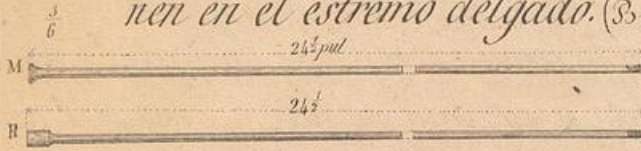 3/6
nen en el estremo delgado. (B
24 1/2 pul
M
24 1/2
R